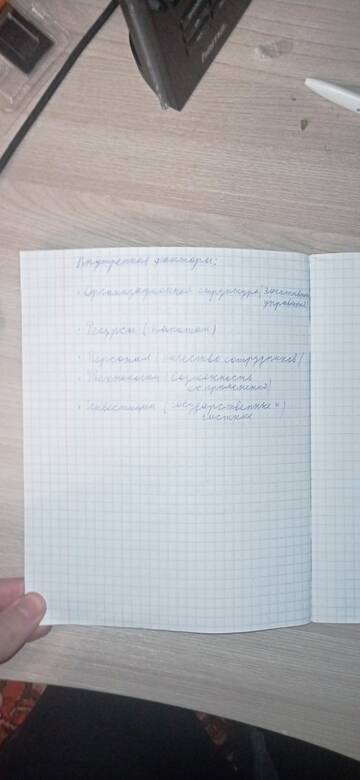 Внутренние факторы:
· организационная структура (
управления)
· Ресурсы (капитал)
· Персонал (качество сотрудников)
· Технологии (возможность
их применения)
· Инвестиции (государственные и
частные